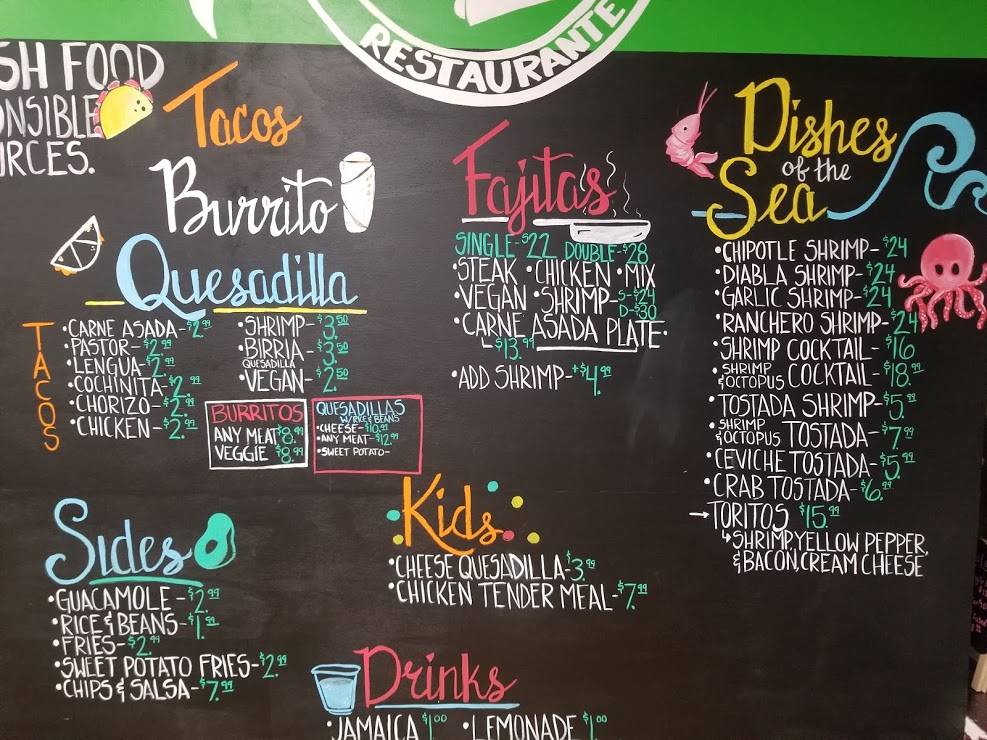 RESTAURANTE
SH FOOD
ONSIBLE
URCES.
Tacos
Burrito
Quesadilla
TACOS
•CARNE ASADA-$2.99
•PASTOR-$2.99
•LENGUA-$2.99
•COCHINITA-$2.99
•CHORIZO-$2.99
•CHICKEN-$2.99
•SHRIMP-$3.50
•BIRRIA-$3.50
QUESADILLA
•VEGAN-$2.50
BURRITOS
ANY MEAT $8.99
VEGGIE $8.99
QUESADILLAS
W/RICE & BEANS
•CHEESE-$10.99
•ANY MEAT-$12.99
•SWEET POTATO-
Sides
•GUACAMOLE-$2.99
•RICE & BEANS-$1.99
•FRIES-$2.99
•SWEET POTATO FRIES-$2.99
•CHIPS & SALSA-$7.99
Fajitas
SINGLE-$22 DOUBLE-$28
•STEAK •CHICKEN •MIX
•VEGAN •SHRIMP-S-$24
D-$30
•CARNE ASADA PLATE•
$13.99
•ADD SHRIMP-+$4.99
Kids
•CHEESE QUESADILLA-$3.99
•CHICKEN TENDER MEAL-$7.99
Drinks
•JAMAICA $1.00 •LEMONADE $1.00
Dishes
of the
Sea
•CHIPOTLE SHRIMP-$24
•DIABLA SHRIMP-$24
•GARLIC SHRIMP-$24
•RANCHERO SHRIMP-$24
•SHRIMP COCKTAIL-$16
•SHRIMP & OCTOPUS COCKTAIL-$18.99
•TOSTADA SHRIMP-$5.99
•SHRIMP & OCTOPUS TOSTADA-$7.99
•CEVICHE TOSTADA-$5.99
•CRAB TOSTADA-$6.99
→TORITOS $15.99
↳SHRIMP, YELLOW PEPPER,
& BACON, CREAM CHEESE